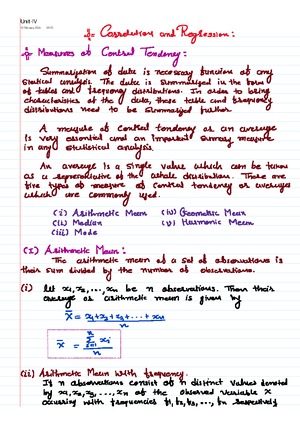 Unit-IV
Correlation and Regression:
Measures of Central Tendency:
Summarization of data is necessary function of any
statical analysis. The data is summarized in the form
of tables and frequency distributions. In order to bring
characteristics of the data, these table and frequency
distributions need to be summarized further.
A measure of central tendency or an average
is very essential and an important summary measure
in any statistical analysis.
An average is a single value which can be taken
as a representative of the whole distribution. There are
five types of measure of central tendency or averages
which are commonly used.
(i) Arithmetic Mean (iv) Geometric Mean
(ii) Median (v) Harmonic Mean
(iii) Mode
(I) Arithmetic Mean:
The arithmetic mean of a set of observations is
their sum divided by the number of observations.
(i) Let x₁, x₂, ..., xₙ be n observations. Then their
average or arithmetic mean is given by
x̄ = x₁+x₂+x₃+...+xₙ / n
x̄ = Σⁿᵢ₌₁ xᵢ / n
(ii) Arithmetic Mean with frequency.
If n observations consist of n distinct values denoted
by x₁, x₂, x₃, ..., xₙ of the observed variable X
occurring with frequencies f₁, f₂, f₃, ..., fₙ respectively